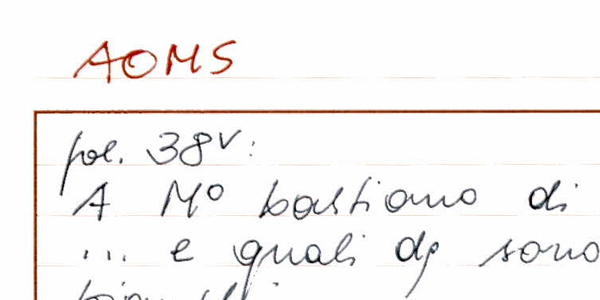 AOMS
fol. 38v:
A Mº bastiano di
... e quali dj sono